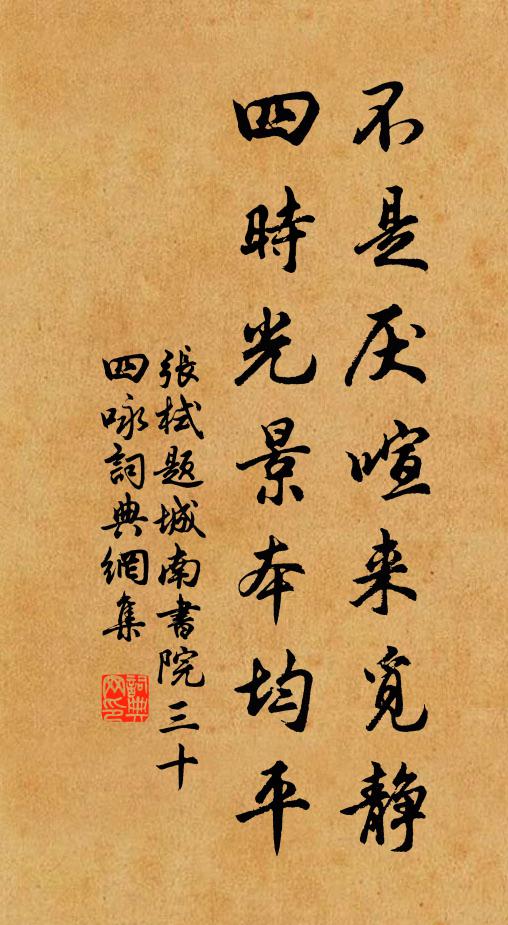 不是厌喧来觅静
四時光景本均平
張栻题城南書院三十
四咏詞典網集
詞典網印